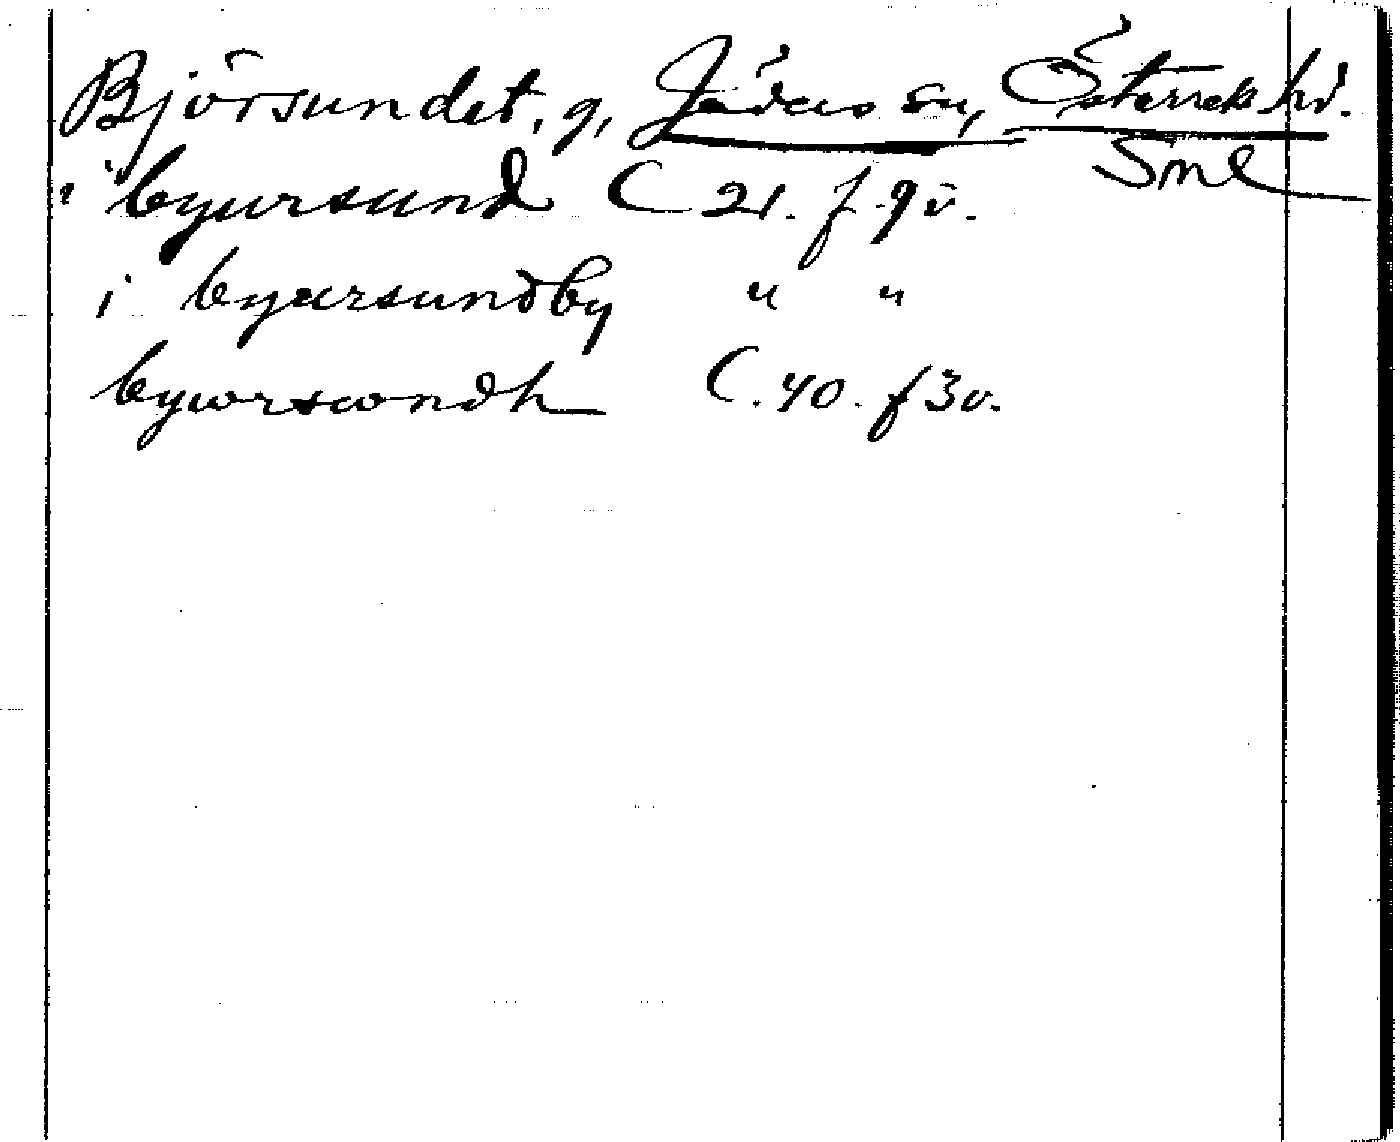 Björsundet, g, Jäders sn, Österrek hd.
Sml
i byursund C 21. f 9 v.
i byursundby " "
byworswndh C. 40. f 3 v.